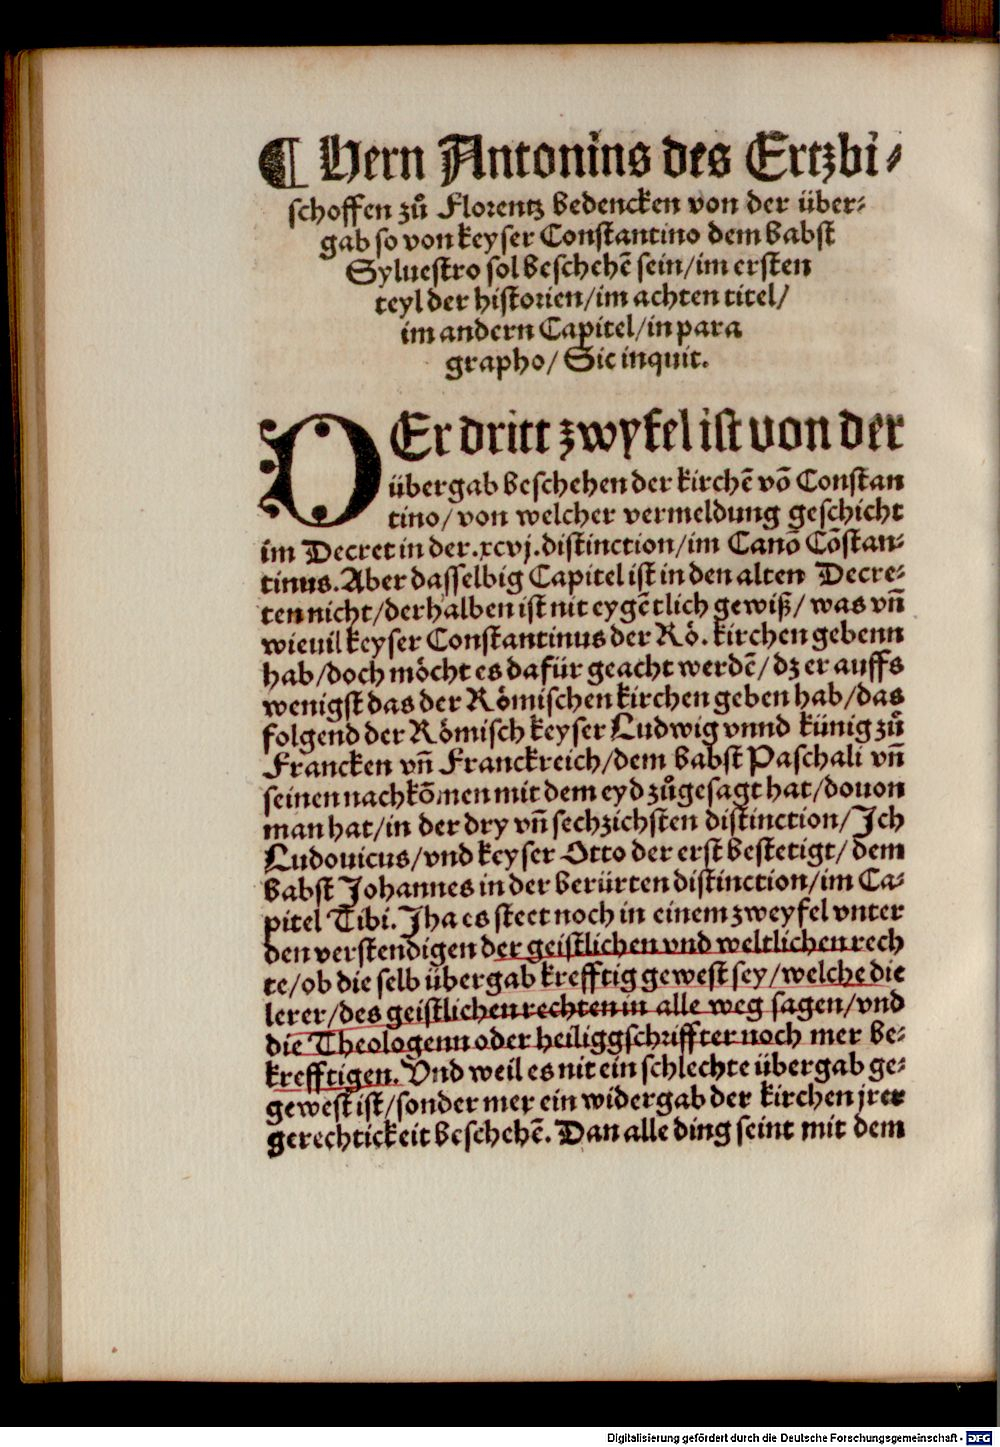 ¶ Hern Antonins des Ertzbi/
schoffen zů Florentz bedencken von der über⸗
gab so von keyser Constantino dem babst
Syluestro sol beschehẽ sein/im ersten
teyl der historien/im achten titel/
im andern Capitel/in para
grapho/ Sic inquit.
DEr dritt zwyfel ist von der
übergab beschehen der kirchẽ võ Constan
tino/ von welcher vermeldung geschicht
im Decret in der.xcvj.distinction/im Canõ Cõstan⸗
tinus. Aber dasselbig Capitel ist in den alten Decre⸗
ten nicht/derhalben ist nit eygẽtlich gewiß/ was vñ
wieuil keyser Constantinus der Rö. kirchen gebenn
hab/doch möcht es dafür geacht werdẽ/ dz er auffs
wenigst das der Römischen kirchen geben hab/das
folgend der Römisch keyser Ludwig vnnd künig zů
Francken vñ Franckreich/dem babst Paschali vñ
seinen nachkõmen mit dem eyd zůgesagt hat/douon
man hat/in der dry vñ sechzichsten distinction/Ich
Ludouicus/vnd keyser Otto der erst bestetigt/ dem
babst Johannes in der berürten distinction/im Ca⸗
pitel Tibi. Jha es steet noch in einem zweyfel vnter
den verstendigen der geistlichen vnd weltlichen rech
te/ob die selb übergab krefftig gewest sey/welche die
lerer/des geistlichen rechten in alle weg sagen/vnd
die Theologenn oder heiliggschriffter noch mer be⸗
krefftigen. Vnd weil es nit ein schlechte übergab ge⸗
gewest ist/sonder mer ein widergab der kirchen jrer
gerechtickeit beschehẽ. Dan alle ding seint mit dem
Digitalisierung gefördert durch die Deutsche Forschungsgemeinschaft - DFG